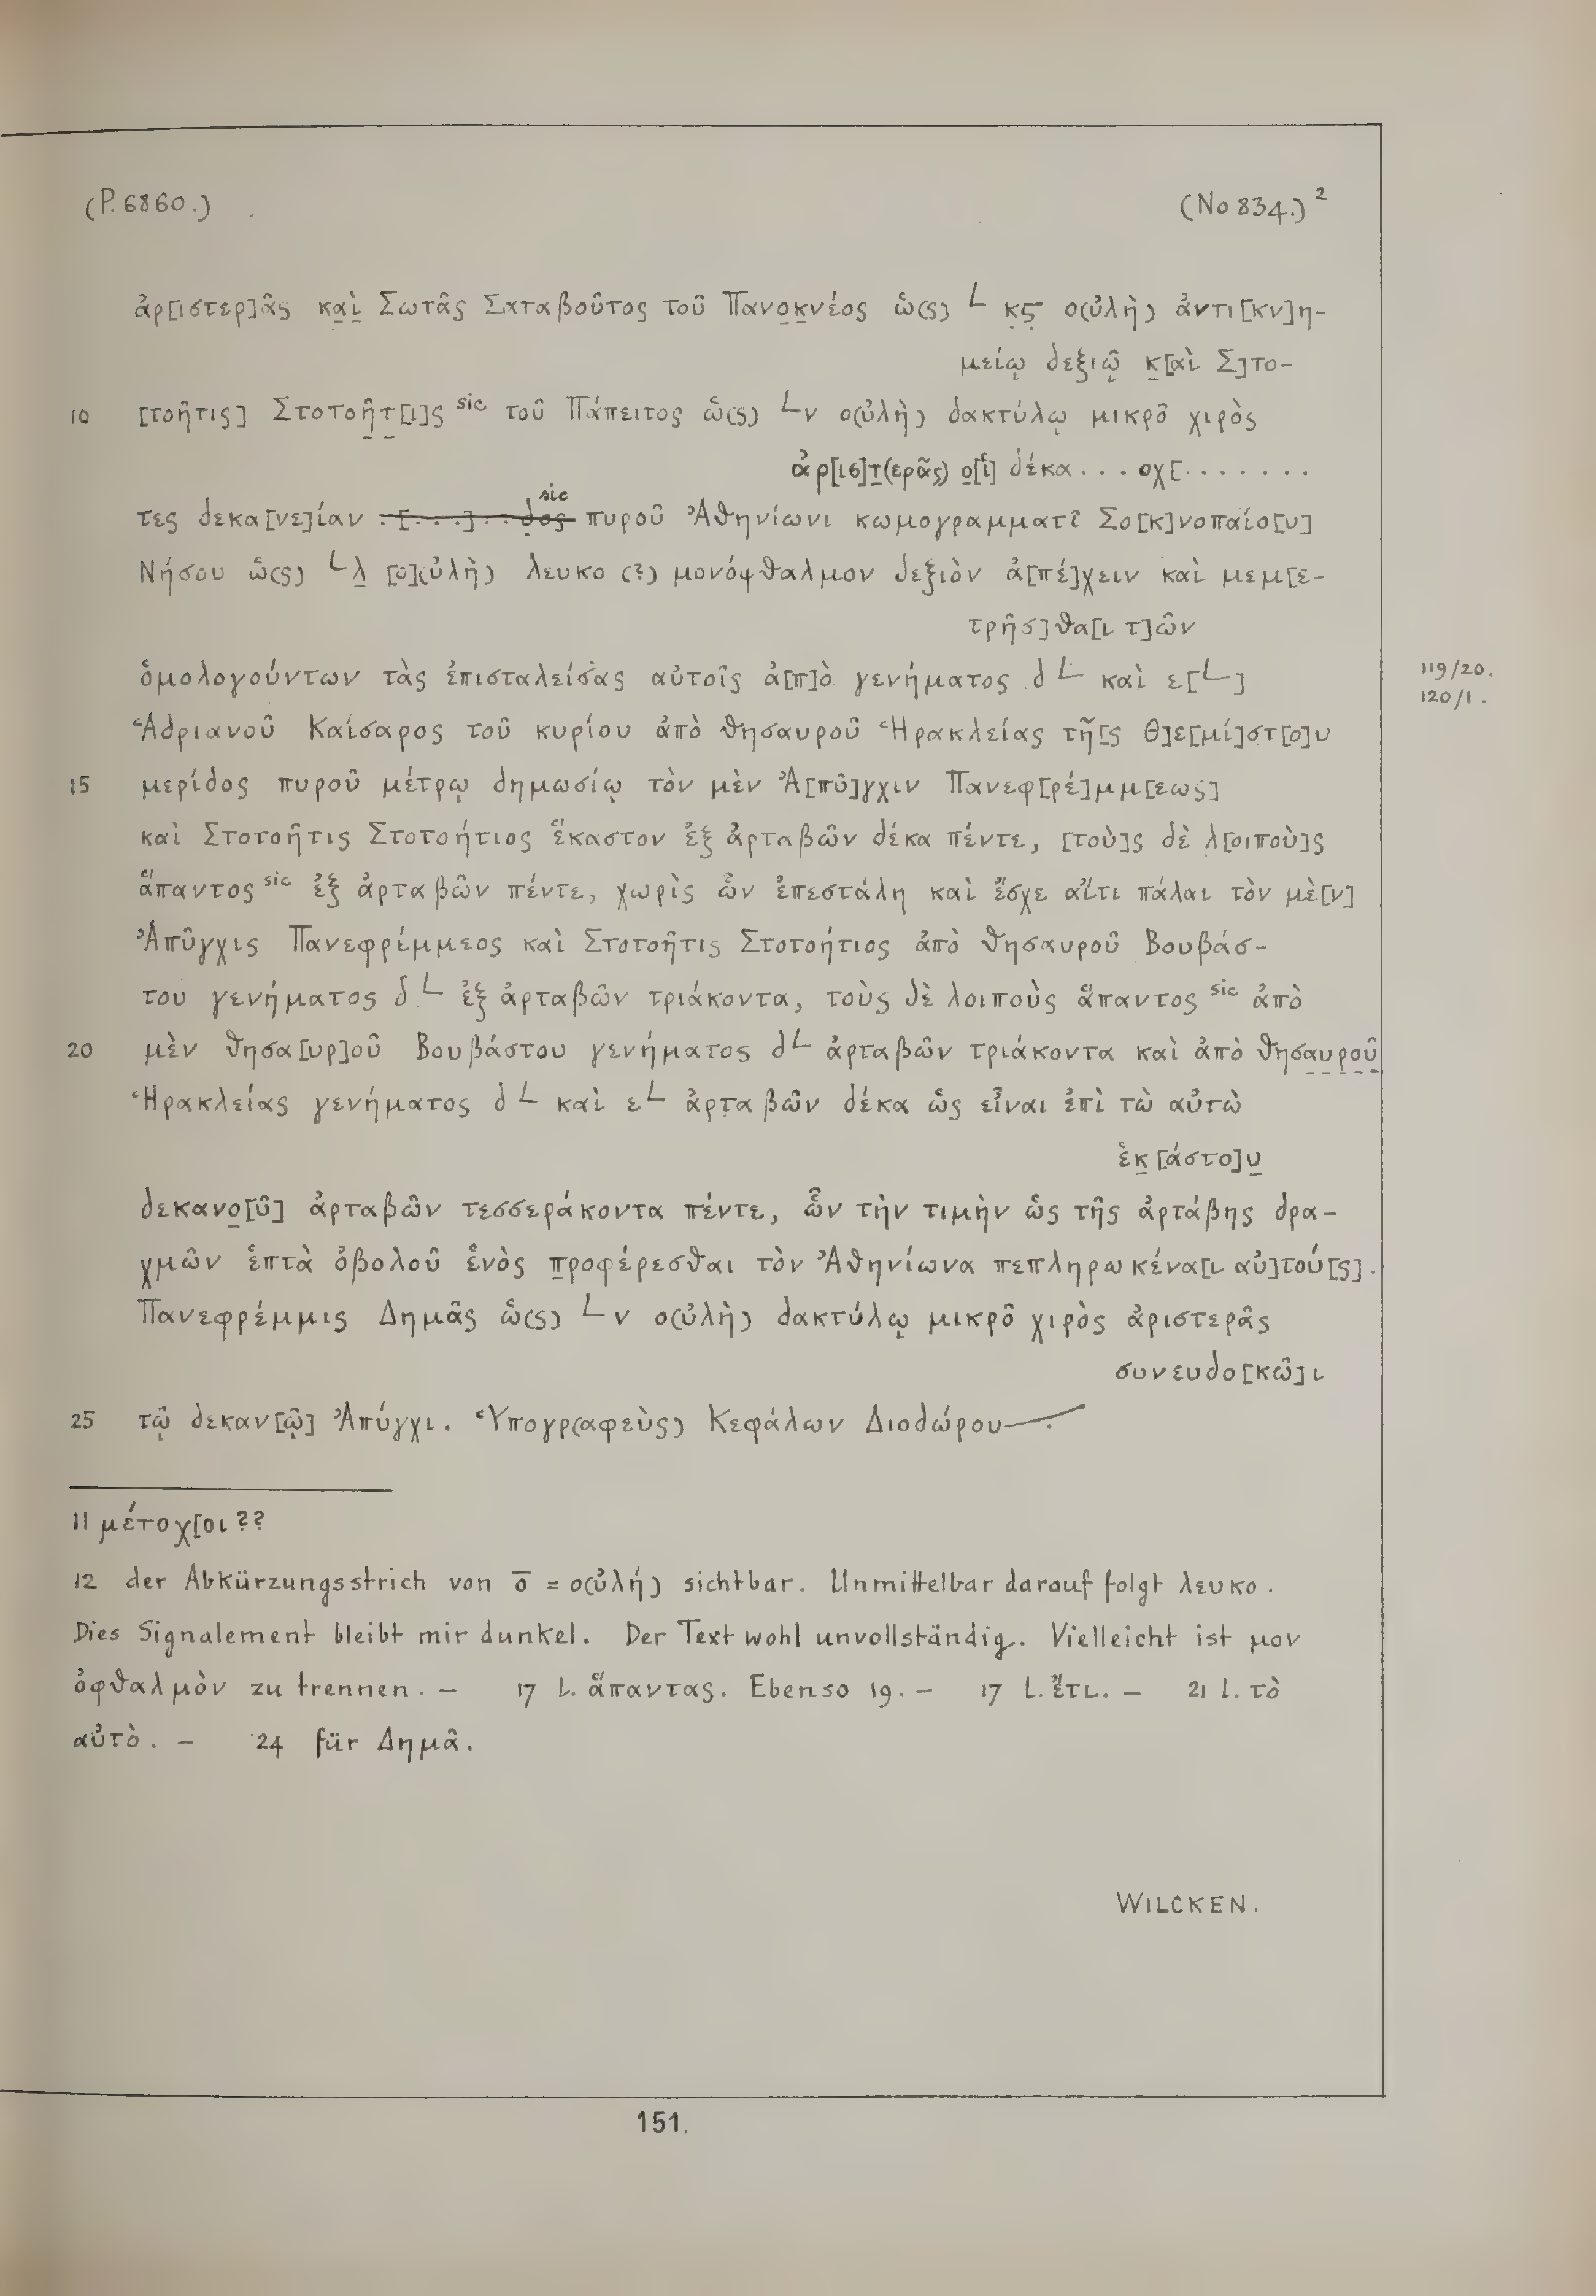 (P. 6860.) (No 834.)²
ἀρ[ιστερ]ᾶς καὶ Σωτᾶς Σαταβοῦτος τοῦ Πανοκνέος ὡ(ς) L κς ο(ὐλὴ) ἀντι[κν]η-
μείῳ δεξιῷ κ[αὶ Σ]το-
10 [τοῆτις] Στοτοῆτ[ι]ς sic τοῦ Πάπειτος ὡ(ς) L ν ο(ὐλὴ) δακτύλῳ μικρῶ χιρὸς
ἀρ[ισ]τ(ερᾶς) ο[ἱ] δέκα . . . οχ[ . . . . . . .
τες δεκα[νε]ίαν . [. . .] . . δος sic πυροῦ Ἀθηνίωνι κωμογραμματῖ Σο[κ]νοπαίο[υ]
Νήσου ὡ(ς) L λ [ο](ὐλὴ) λευκο (?) μονόφθαλμον δεξιὸν ἀ[πέ]χειν καὶ μεμ[ε-
τρῆσ]θα[ι τ]ῶν
ὁμολογούντων τὰς ἐπισταλείσας αὐτοῖς ἀ[π]ὸ γενήματος δ L καὶ ε[L] 119/20.
120/1.
Ἁδριανοῦ Καίσαρος τοῦ κυρίου ἀπὸ θησαυροῦ Ἡρακλείας τῆ[ς Θ]ε[μί]στ[ο]υ
15 μερίδος πυροῦ μέτρῳ δημωσίῳ τὸν μὲν Ἀ[πῦ]γχιν Πανεφ[ρέ]μμ[εως]
καὶ Στοτοῆτις Στοτοήτιος ἕκαστον ἐξ ἀρταβῶν δέκα πέντε, [τοὺ]ς δὲ λ[οιποὺ]ς
ἅπαντος sic ἐξ ἀρταβῶν πέντε, χωρὶς ὧν ἐπεστάλη καὶ ἔσχε αἴτι πάλαι τὸν μὲ[ν]
Ἀπῦγχις Πανεφρέμμεος καὶ Στοτοῆτις Στοτοήτιος ἀπὸ θησαυροῦ Βουβάσ-
του γενήματος δ L ἐξ ἀρταβῶν τριάκοντα, τοὺς δὲ λοιποὺς ἅπαντος sic ἀπὸ
20 μὲν θησα[υρ]οῦ Βουβάστου γενήματος δ L ἀρταβῶν τριάκοντα καὶ ἀπὸ θησαυροῦ
Ἡρακλείας γενήματος δ L καὶ ε L ἀρταβῶν δέκα ὡς εἶναι ἐπὶ τὼ αὐτὼ
ἑκ[άστο]υ
δεκανο[ῦ] ἀρταβῶν τεσσεράκοντα πέντε, ὧν τὴν τιμὴν ὡς τῆς ἀρτάβης δρα-
χμῶν ἑπτὰ ὀβολοῦ ἑνὸς προφέρεσθαι τὸν Ἀθηνίωνα πεπληρωκένα[ι αὐ]τού[ς].
Πανεφρέμμις Δημᾶς ὡ(ς) L ν ο(ὐλὴ) δακτύλῳ μικρῶ χιρὸς ἀριστερᾶς
συνευδο[κῶ]ι
25 τῷ δεκαν[ῷ] Ἀπύγχι. Ὑπογρ(αφεὺς) Κεφάλων Διοδώρου.
11 μέτοχ[οι ??
12 der Abkürzungsstrich von ō = ο(ὐλή) sichtbar. Unmittelbar darauf folgt λευκο.
Dies Signalement bleibt mir dunkel. Der Text wohl unvollständig. Vielleicht ist μον
ὀφθαλμὸν zu trennen. – 17 l. ἅπαντας. Ebenso 19. – 17 l. ἔτι. – 21 l. τὸ
αὐτὸ. – 24 für Δημᾶ.
WILCKEN.
151.